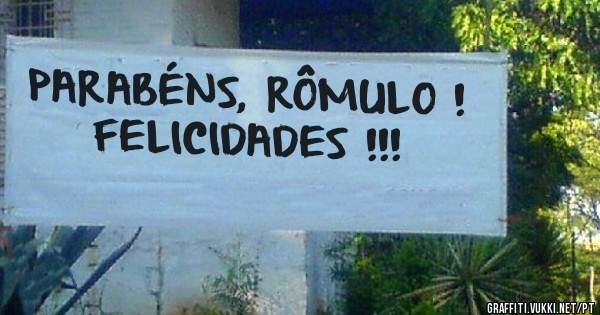 PARABÉNS, RÔMULO !
FELICIDADES !!!
GRAFFITI.VUKKI.NET/PT